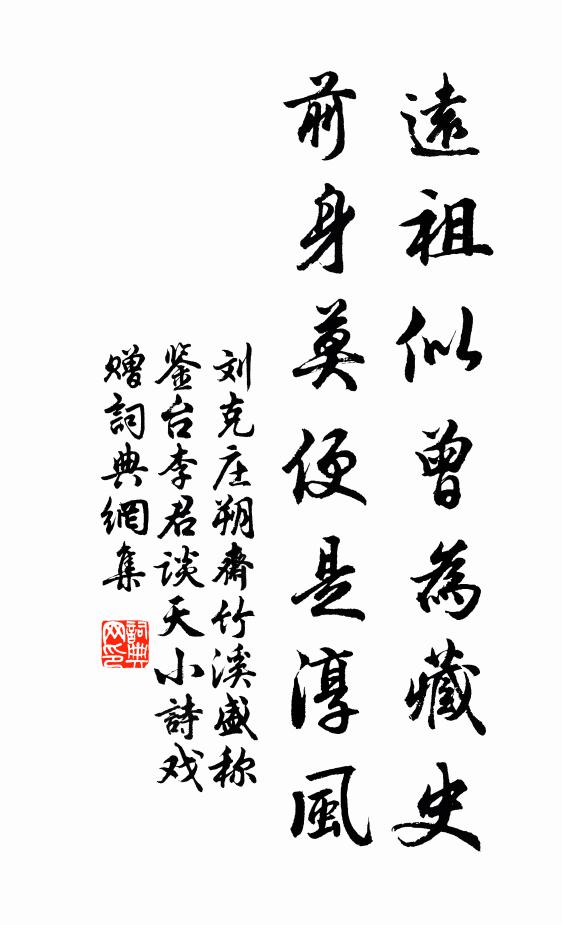 遠祖似曾為藏史
前身莫便是淳風
刘克庄朔齋竹溪盛称
鉴台李君谈天小詩戏
赠詞典網集
詞典
网印